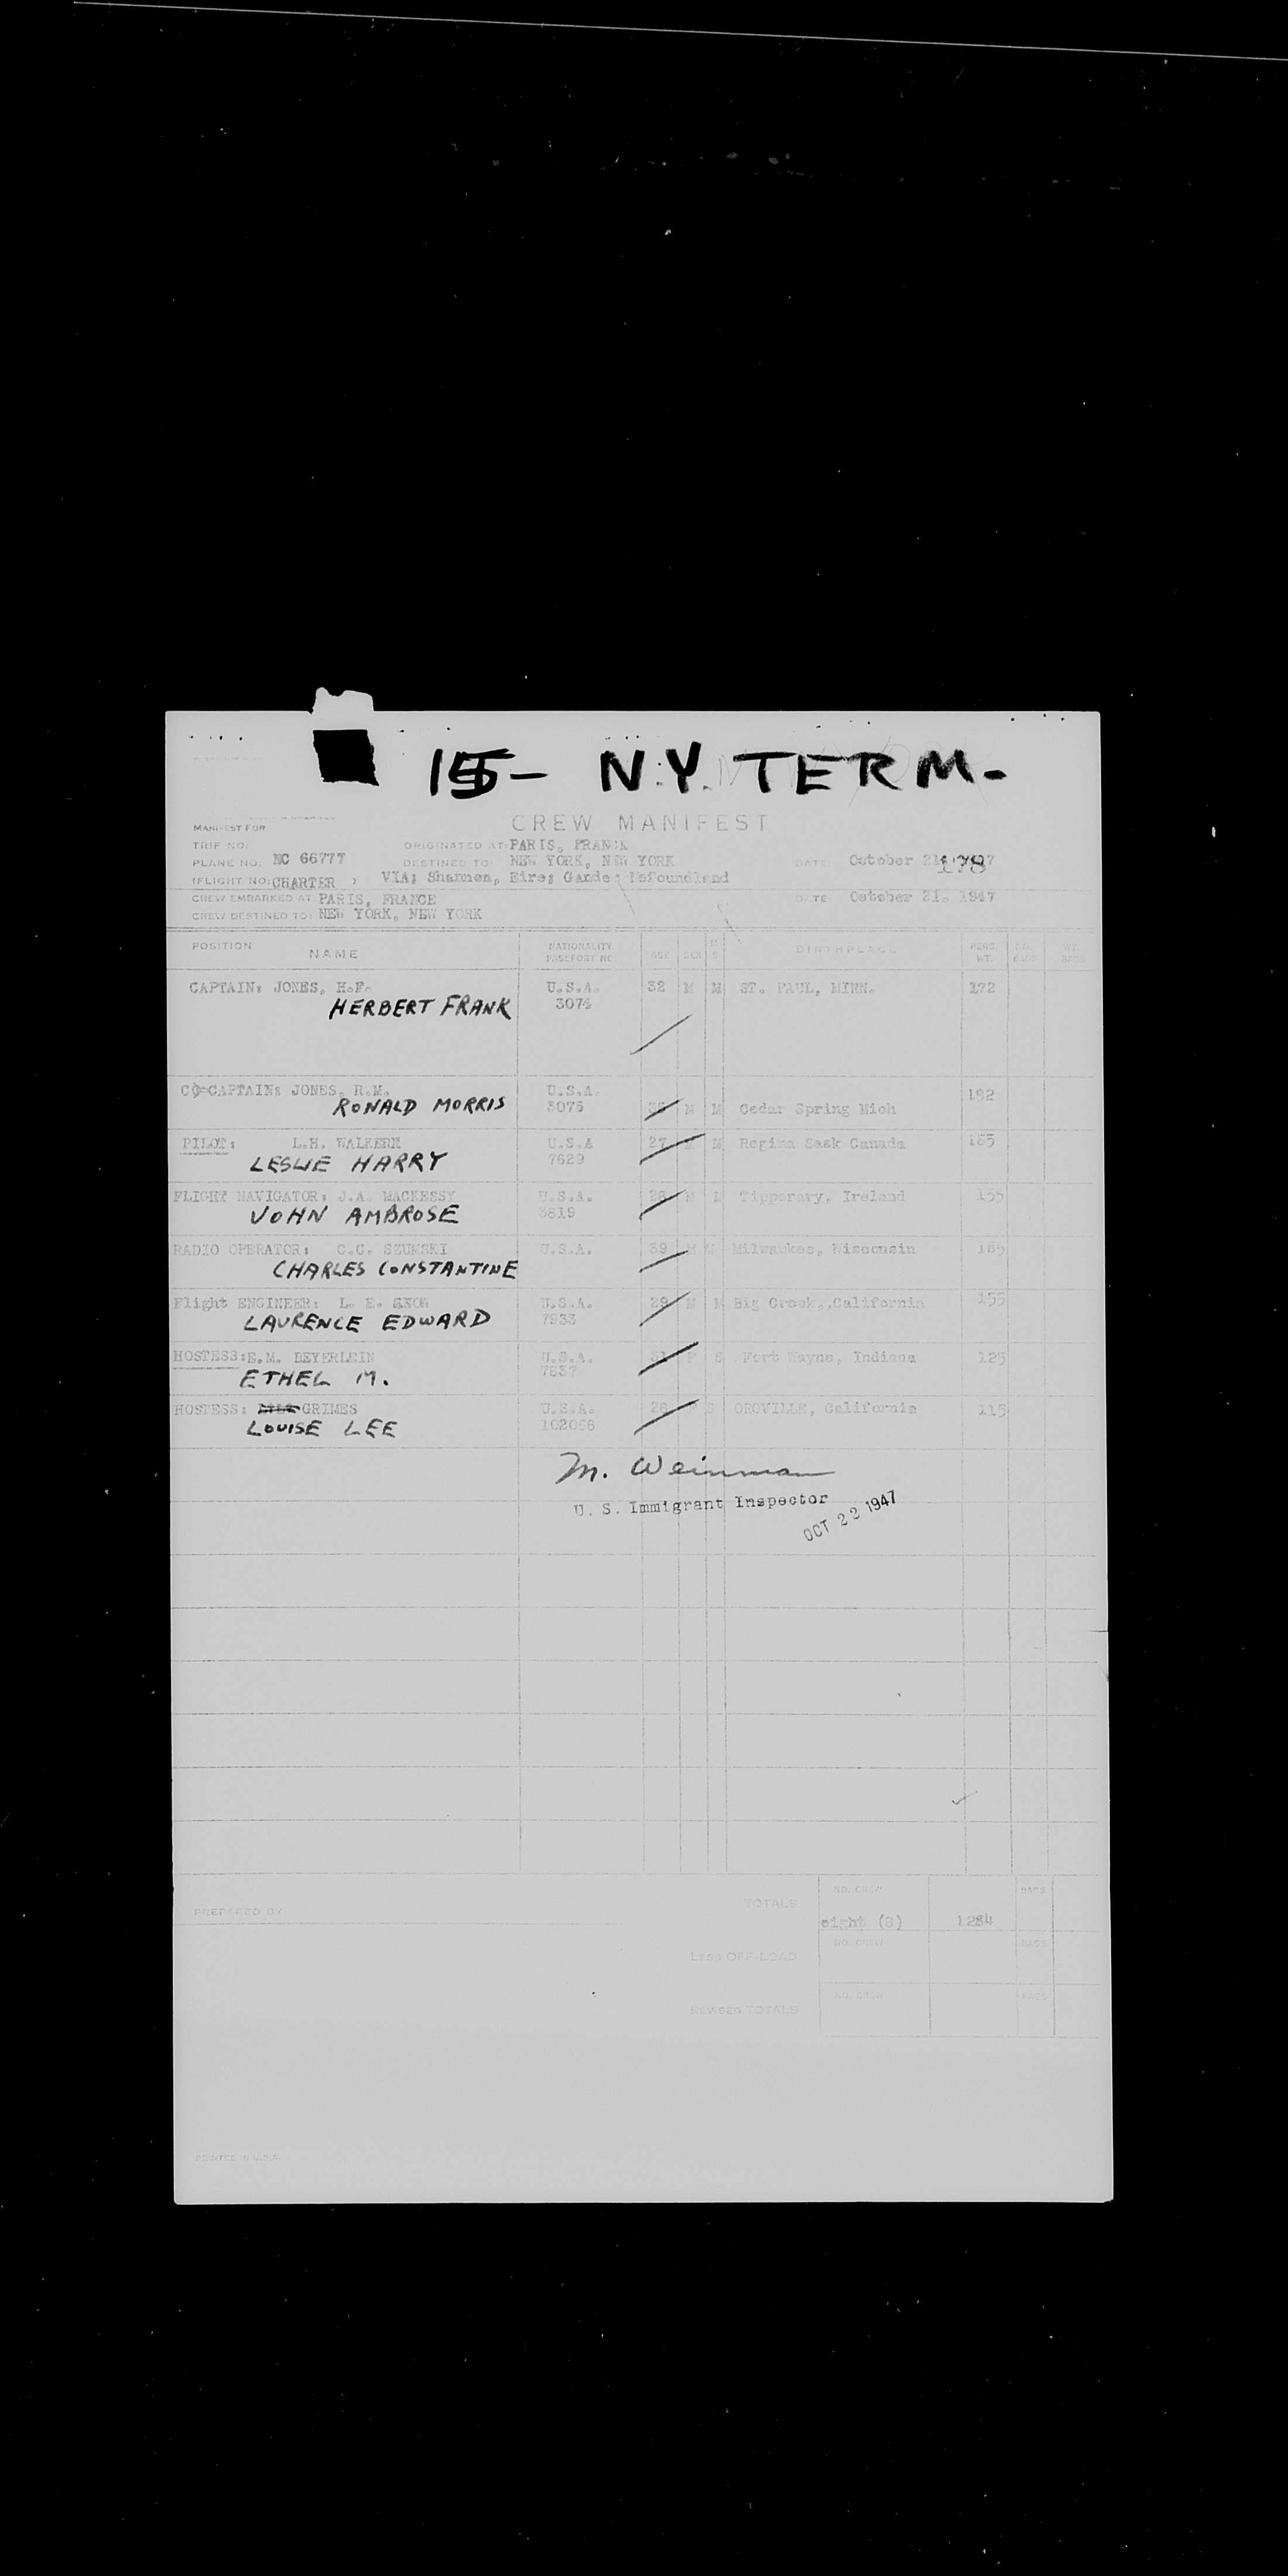 15- N.Y. TERM.
CREW MANIFEST
MANIFEST FOR
TRIP NO: ORIGINATED AT: PARIS, FRANCE
PLANE NO: NC 66777 DESTINED TO: NEW YORK, NEW YORK DATE: October 21 178
(FLIGHT NO: CHARTER ) VIA; Shannon, Eire; Gander Nefoundland
CREW EMBARKED AT: PARIS, FRANCE DATE: October 21. 1947
CREW DESTINED TO: NEW YORK, NEW YORK
POSITION NAME NATIONALITY PASSPORT NO AGE SEX M S BIRTHPLACE PERS. WT. NO. BAGS WT. BAGS
CAPTAIN: JONES, H.F. U.S.A. 32 M M ST. PAUL, MINN. 172
HERBERT FRANK 3074
CO-CAPTAIN: JONES, R.M. U.S.A. 192
RONALD MORRIS 3075 M M Cedar Spring Mich
PILOT: L.H. U.S.A 27 M Regina Sask Canada 185
LESLIE HARRY 7629
FLIGHT NAVIGATOR: J.A. MACKESSY U.S.A. 28 M Tipperary, Ireland 155
JOHN AMBROSE 3819
RADIO OPERATOR: C.C. SZUMSKI U.S.A. 39 M Milwaukee, Wisconsin 185
CHARLES CONSTANTINE
Flight ENGINEER: L. E. U.S.A. 29 M M Big Creek,,California 155
LAURENCE EDWARD 7933
HOSTESS: E.M. BEYERLEIN U.S.A. 31 F S Fort Wayne, Indiana 125
ETHEL M. 7637
HOSTESS: GRIMES U.S.A. 26 S OROVILLE, California 115
LOUISE LEE 102068
M. Weinman
U. S. Immigrant Inspector
OCT 22 1947
NO. CREW BAGS
TOTALS
PREPARED BY eight (8) 1284
NO. CREW BAGS
LESS OFF-LOAD
NO. CREW BAGS
REVISED TOTALS
PRINTED IN U.S.A.